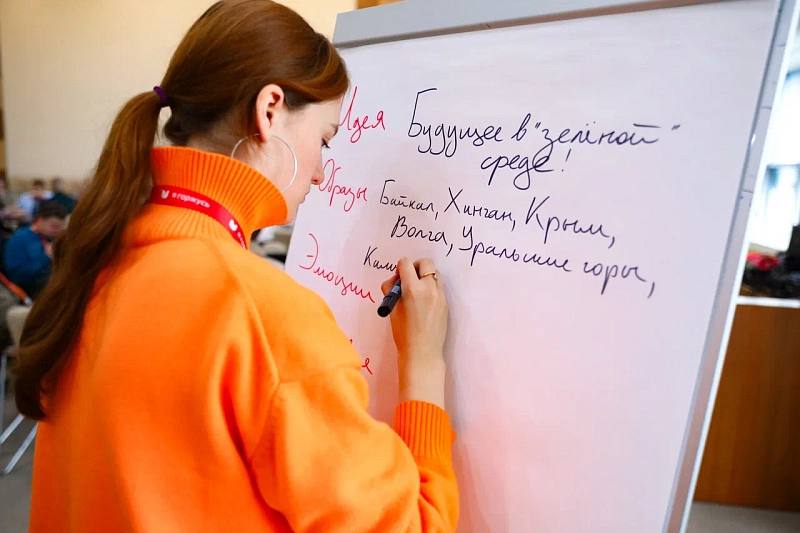 Идея Будущее в "зелёной"
среде!
Образы Байкал, Хинган, Крым,
Волга, Уральские горы,
Эмоции
я горжусь